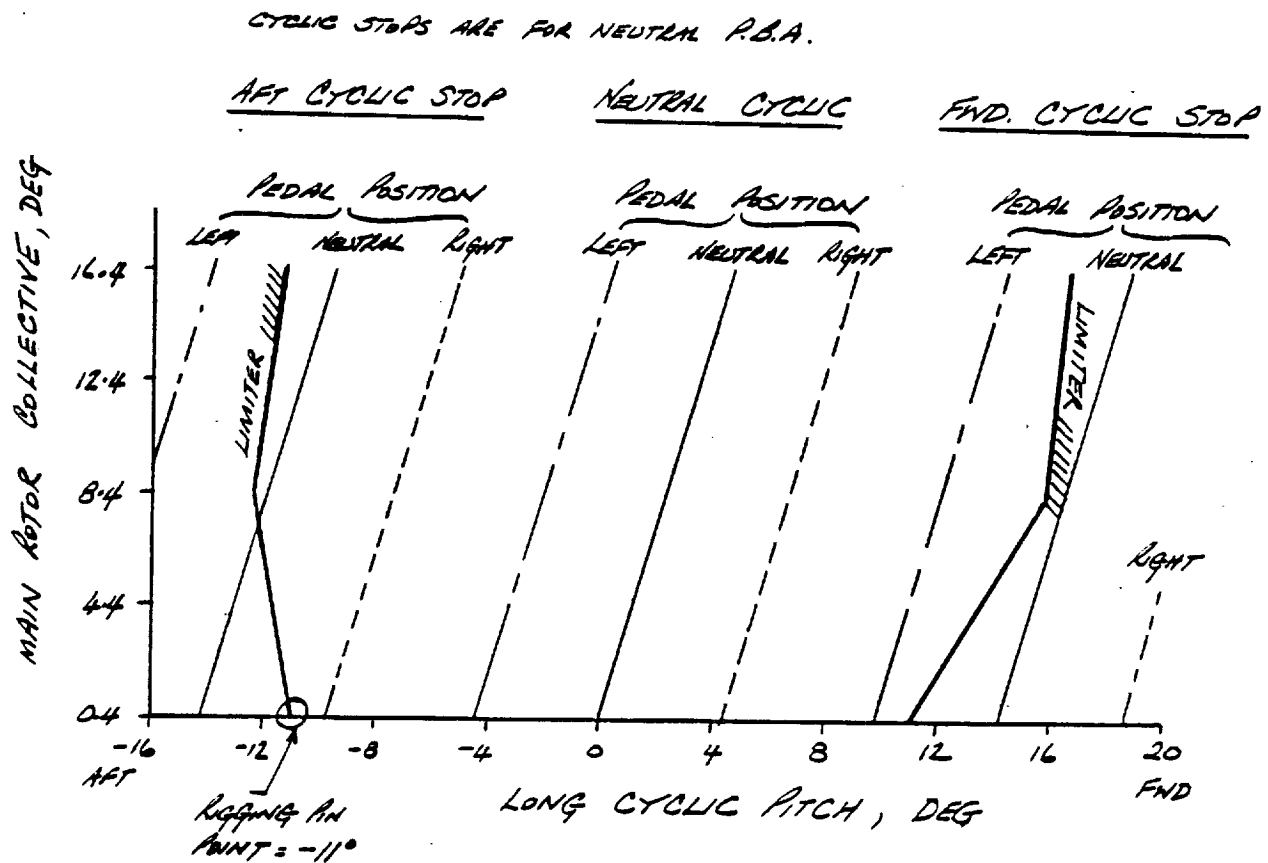 CYCLIC STOPS ARE FOR NEUTRAL P.B.A.
AFT CYCLIC STOP
NEUTRAL CYCLIC
FWD. CYCLIC STOP
PEDAL POSITION
LEFT NEUTRAL RIGHT
PEDAL POSITION
LEFT NEUTRAL RIGHT
PEDAL POSITION
LEFT NEUTRAL
RIGHT
LIMITER
LIMITER
MAIN ROTOR COLLECTIVE, DEG
16.4
12.4
8.4
4.4
0.4
-16 -12 -8 -4 0 4 8 12 16 20
AFT
FWD
LONG CYCLIC PITCH, DEG
RIGGING PIN
POINT = -11°